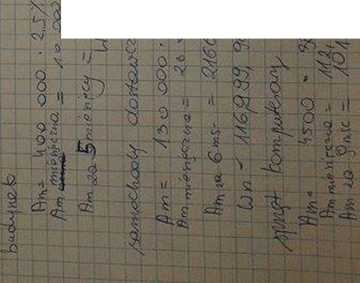 budynek
Am = 400 000 · 2,5%
Am miesięczna = 10 000
Am za 5 miesięcy =
samochody dostawcz
Am = 130 000 ·
Am miesięczna =
Am za 6 ms- = 2166
Wn - 116999, 9
sprzęt komputerowy
Am = 4500 ·
Am miesięczna = 112,
Am za 9 msc = 101